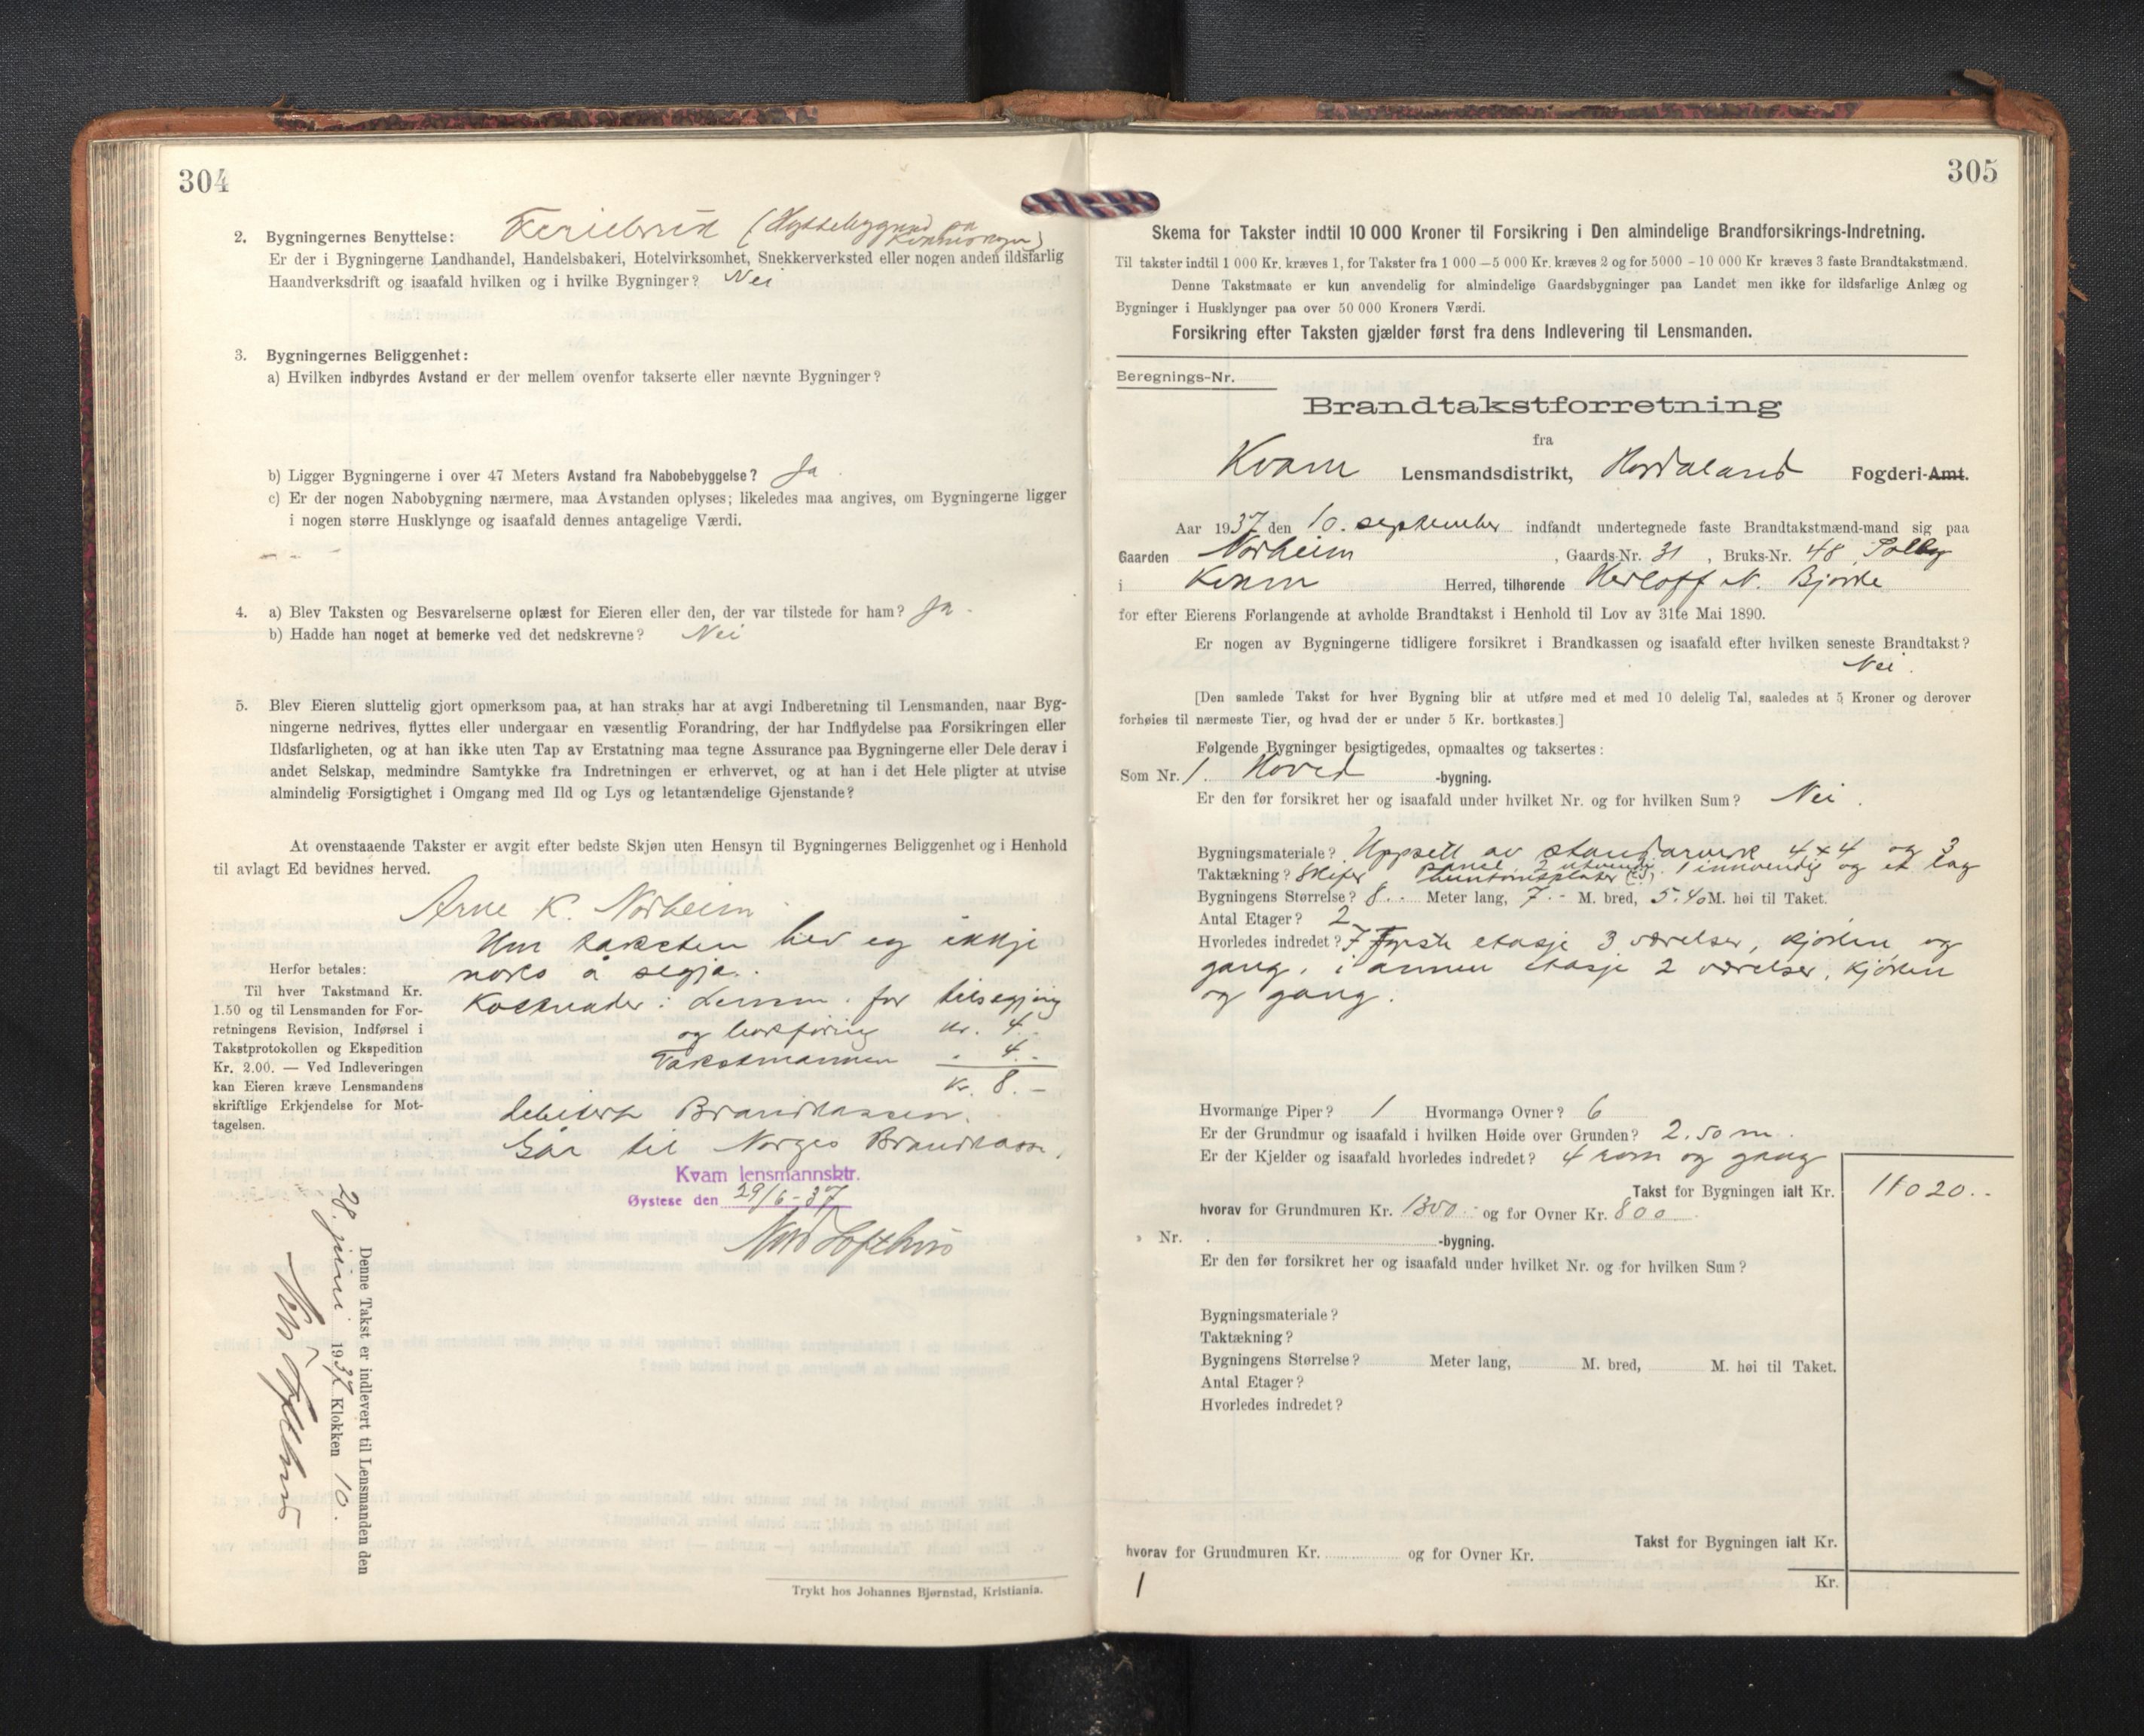 304
2. Bygningernes Benyttelse: Feriebruk (Hyttebygnad på
Er der i Bygningerne Landhandel, Handelsbakeri, Hotelvirksomhet, Snekkerverksted eller nogen anden ildsfarlig
Haandverksdrift og isaafald hvilken og i hvilke Bygninger? Nei
3. Bygningernes Beliggenhet:
a) Hvilken indbyrdes Avstand er der mellem ovenfor takserte eller nævnte Bygninger?
b) Ligger Bygningerne i over 47 Meters Avstand fra Nabobebyggelse? Ja.
c) Er der nogen Nabobygning nærmere, maa Avstanden oplyses; likeledes maa angives, om Bygningerne ligger
i nogen større Husklynge og isaafald dennes antagelige Værdi.
4. a) Blev Taksten og Besvarelserne oplæst for Eieren eller den, der var tilstede for ham? Ja.
b) Hadde han noget at bemerke ved det nedskrevne? Nei
5. Blev Eieren sluttelig gjort opmerksom paa, at han straks har at avgi Indberetning til Lensmanden, naar Byg-
ningerne nedrives, flyttes eller undergaar en væsentlig Forandring, der har Indflydelse paa Forsikringen eller
Ildsfarligheten, og at han ikke uten Tap av Erstatning maa tegne Assurance paa Bygningerne eller Dele derav i
andet Selskap, medmindre Samtykke fra Indretningen er erhvervet, og at han i det Hele pligter at utvise
almindelig Forsigtighet i Omgang med Ild og Lys og letantændelige Gjenstande?
At ovenstaaende Takster er avgit efter bedste Skjøn uten Hensyn til Bygningernes Beliggenhet og i Henhold
til avlagt Ed bevidnes herved.
Arne K. Norheim
Um taksten hev eg ikkje
noko å segja.
Kostnader: Lensm. for tilsegjing
og bokføring kr. 4.-
Takstmannen - 4.-
kr. 8.-
debitert Brandkassen.
Går til Norges Brandkasse.
Kvam lensmannsktr.
Øystese den 29/6-37
Nils Lofthus
Herfor betales:
Til hver Takstmand Kr.
1.50 og til Lensmanden for For-
retningens Revision, Indførsel i
Takstprotokollen og Ekspedition
Kr. 2.00. — Ved Indleveringen
kan Eieren kræve Lensmandens
skriftlige Erkjendelse for Mot-
tagelsen.
Denne Takst er indlevert til Lensmanden den
28. juni 1937 Klokken 10.
Nils Lofthus
Trykt hos Johannes Bjørnstad, Kristiania.
305
Skema for Takster indtil 10 000 Kroner til Forsikring i Den almindelige Brandforsikrings-Indretning.
Til takster indtil 1 000 Kr. kræves 1, for Takster fra 1 000—5 000 Kr. kræves 2 og for 5000 - 10 000 Kr kræves 3 faste Brandtakstmænd.
Denne Takstmaate er kun anvendelig for almindelige Gaardsbygninger paa Landet men ikke for ildsfarlige Anlæg og
Bygninger i Husklynger paa over 50 000 Kroners Værdi.
Forsikring efter Taksten gjælder først fra dens Indlevering til Lensmanden.
Beregnings-Nr.
Brandtakstforretning
fra
Kvam Lensmandsdistrikt, Hordaland Fogderi-Amt.
Aar 1937 den 10. september indfandt undertegnede faste Brandtakstmænd-mand sig paa
Gaarden Norheim, Gaards-Nr. 31, Bruks-Nr. 48, Solby
i Kvam Herred, tilhørende Herloff N. Bjorke
for efter Eierens Forlangende at avholde Brandtakst i Henhold til Lov av 31te Mai 1890.
Er nogen av Bygningerne tidligere forsikret i Brandkassen og isaafald efter hvilken seneste Brandtakst?
Nei.
[Den samlede Takst for hver Bygning blir at utføre med et med 10 delelig Tal, saaledes at 5 Kroner og derover
forhøies til nærmeste Tier, og hvad der er under 5 Kr. bortkastes.]
Følgende Bygninger besigtigedes, opmaaltes og taksertes:
Som Nr. 1. Hoved -bygning.
Er den før forsikret her og isaafald under hvilket Nr. og for hvilken Sum? Nei.
Bygningsmateriale? Uppsett av standarverk 4x4 og 3
panel 2 utvendig 1 innvendig og et lag
Taktækning? Skifer huntonitplater
Bygningens Størrelse? 8.- Meter lang, 7.- M. bred, 5.40 M. høi til Taket.
Antal Etager? 2
Hvorledes indredet? I fyrste etasje 3 værelser, kjøken og
gang, i annen etasje 2 værelser, kjøken
og gang.
Hvormange Piper? 1 Hvormange Ovner? 6
Er der Grundmur og isaafald i hvilken Høide over Grunden? 2.50 m.
Er der Kjelder og isaafald hvorledes indredet? 4 rom og gang
Takst for Bygningen ialt Kr. 11020.-
hvorav for Grundmuren Kr. 1300.- og for Ovner Kr. 800
" Nr. -bygning.
Er den før forsikret her og isaafald under hvilket Nr. og for hvilken Sum?
Bygningsmateriale?
Taktækning?
Bygningens Størrelse? Meter lang, M. bred, M. høi til Taket.
Antal Etager?
Hvorledes indredet?
Takst for Bygningen ialt Kr.
hvorav for Grundmuren Kr. og for Ovner Kr.
Kr.
1